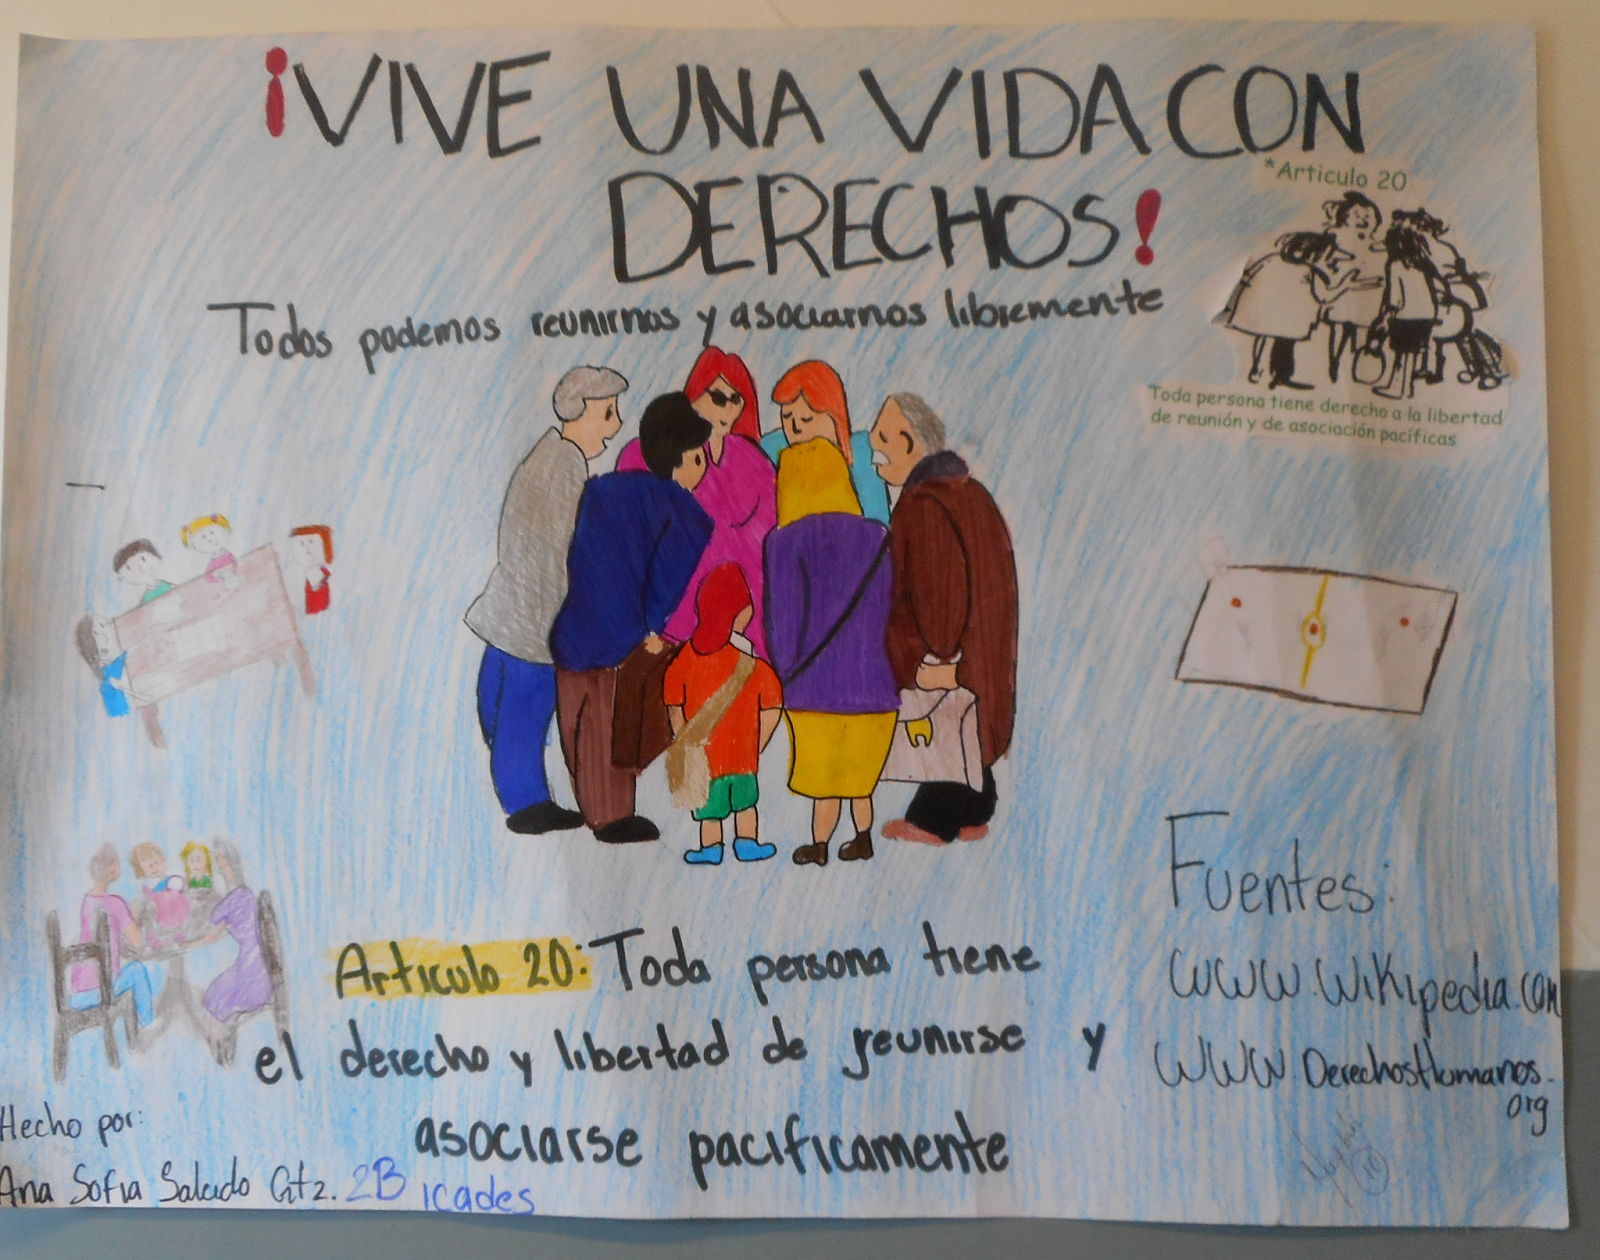 ¡VIVE UNA VIDA CON
DERECHOS!
*Articulo 20
Toda persona tiene derecho a la libertad
de reunión y de asociación pacíficas
Todos podemos reunirnos y asociarnos libremente
Articulo 20: Toda persona tiene
el derecho y libertad de reunirse y
asociarse pacíficamente
Fuentes:
www.wikipedia.com
www.DerechosHumanos.
org
Hecho por:
Ana Sofia Salcido Gtz. 2B icades